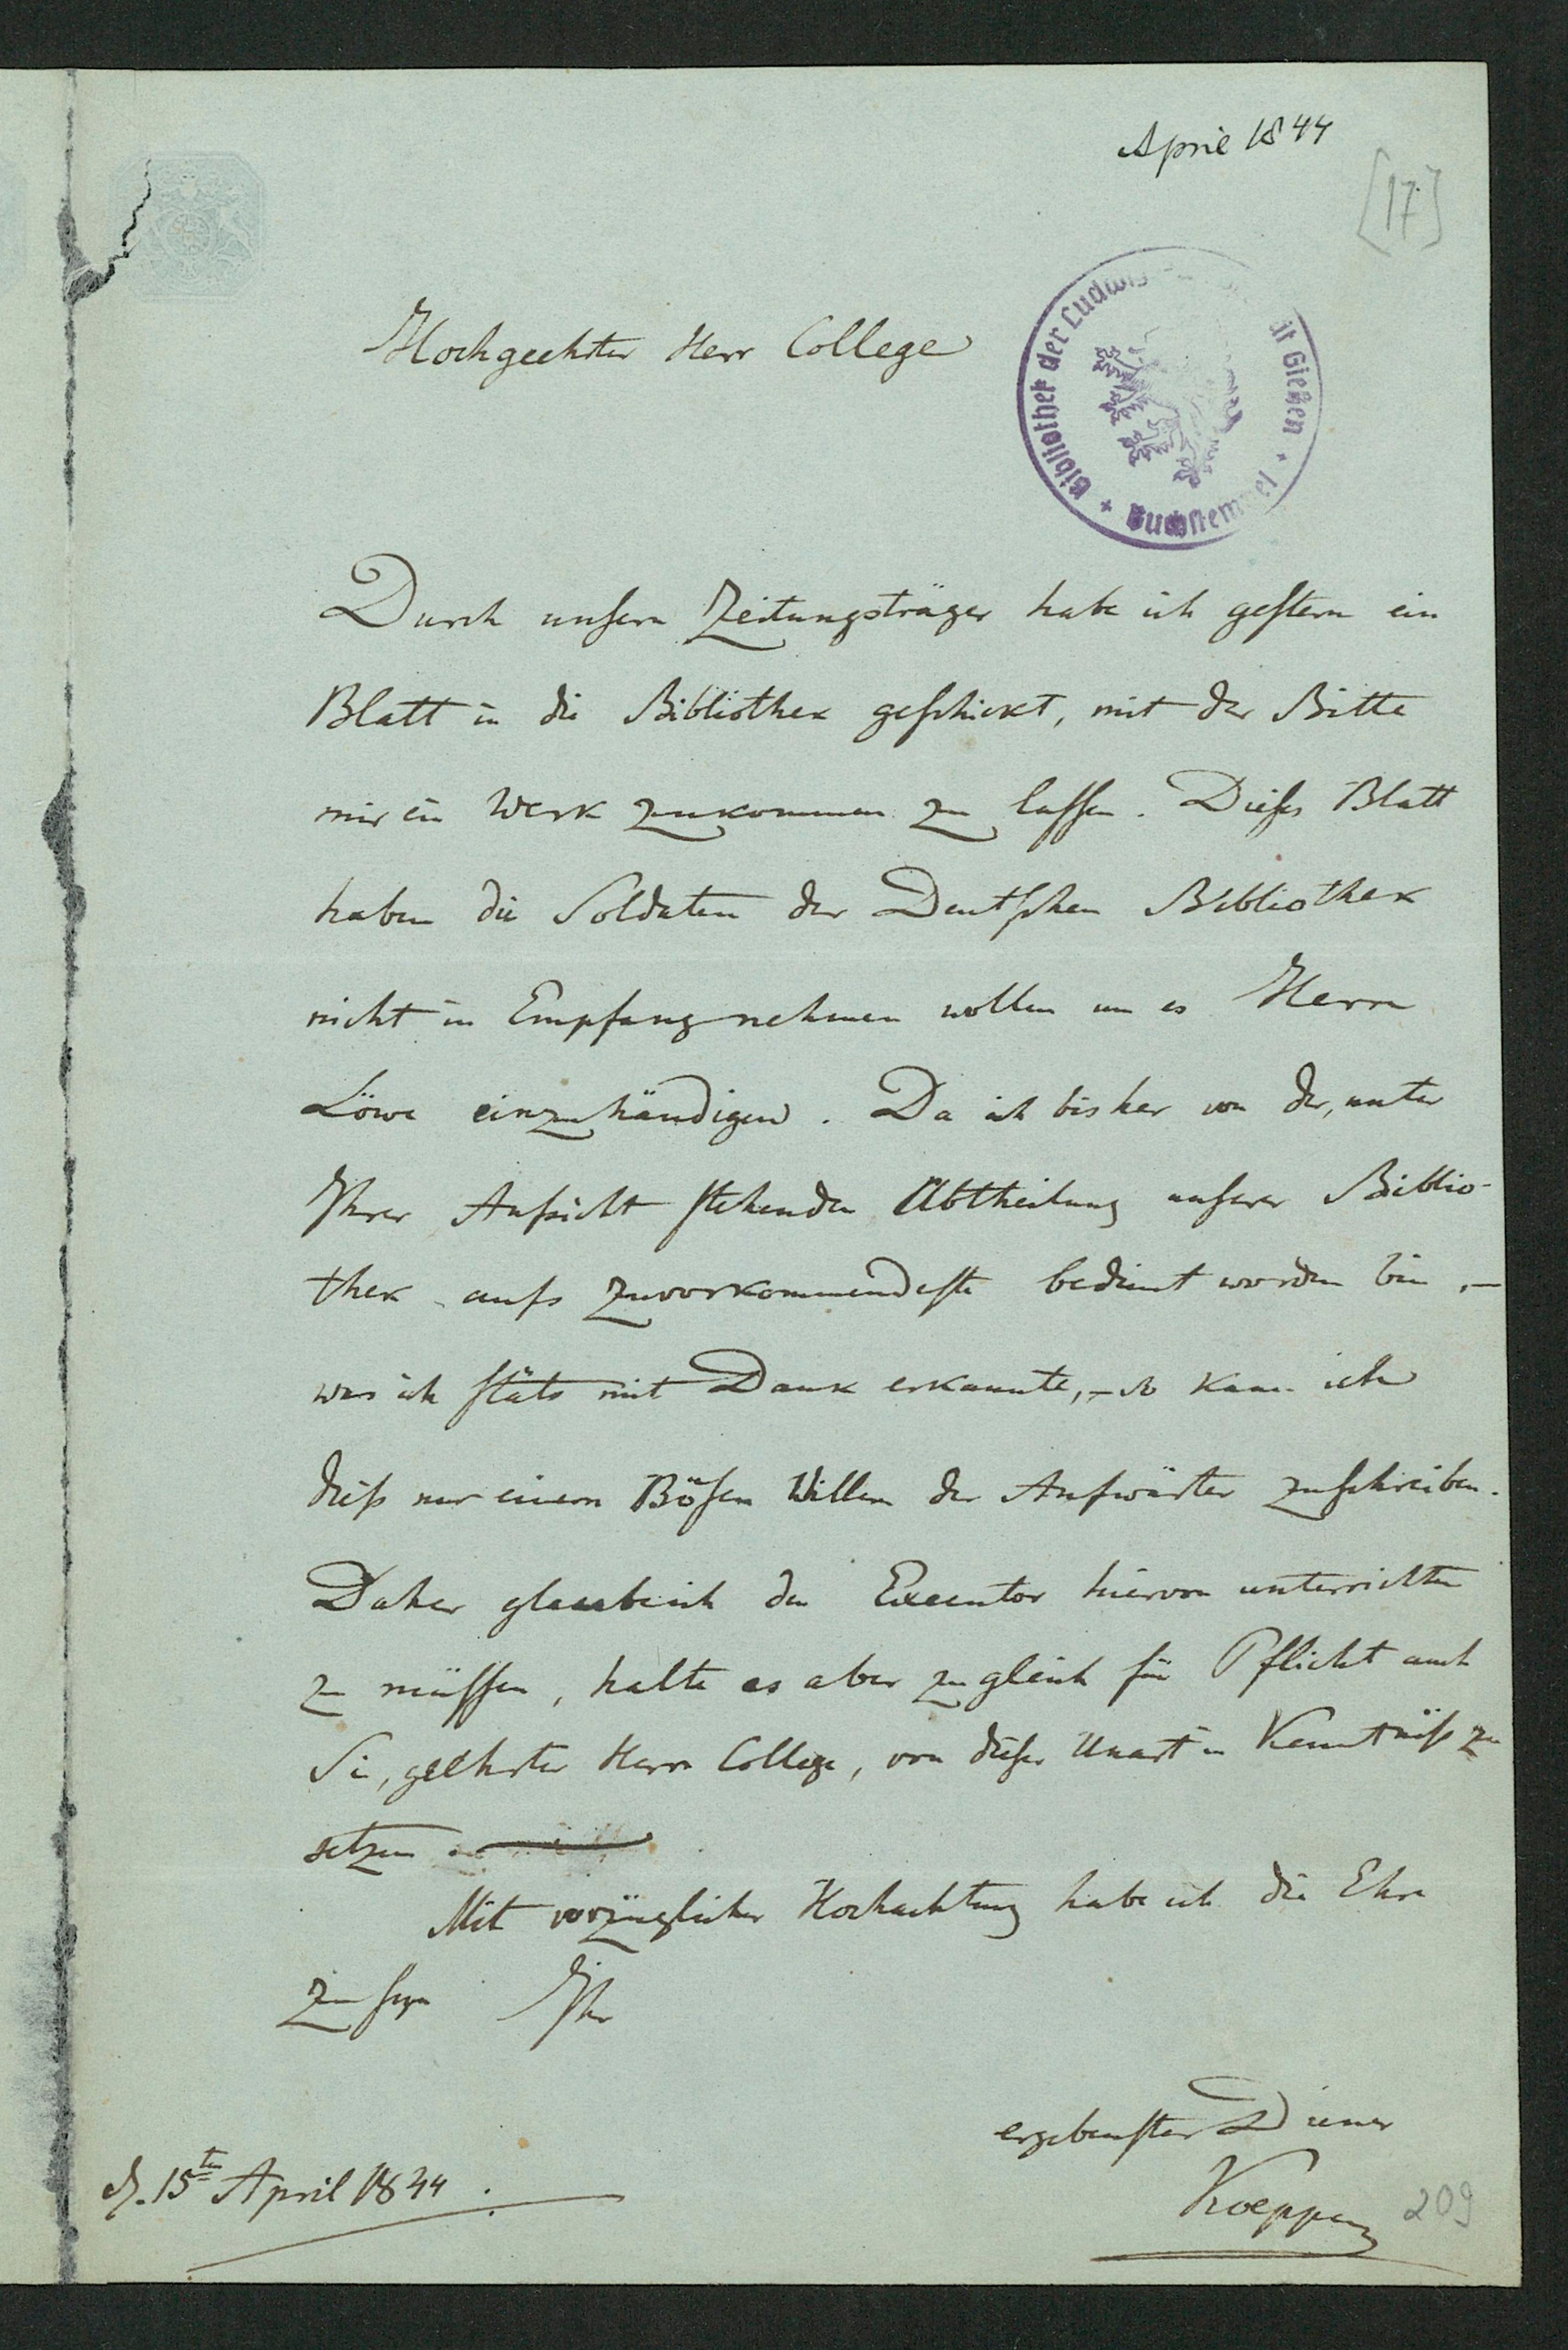 April 1844
[17]
Hochgeehrter Herr College
Bibliothek der Ludwigs ät Gießen
Buchstempel
Durch unsern Zeitungsträger habe ich gestern ein
Blatt in die Bibliothek geschickt, mit der Bitte
mir ein Werk zukommen zu lassen. Dieses Blatt
haben die Soldaten der Deutschen Bibliothek
nicht in Empfang nehmen wollen um es Herrn
Löwe einzuhändigen. Da ich bisher von der, unter
Ihrer Aufsicht stehenden Abtheilung unserer Biblio-
thek aufs zuvorkommendeste bedient worden bin, –
was ich stäts mit Dank erkannte, – so kann ich
dieß nur einem Bösen Willen der Aufwärter zuschreiben.
Daher glaube ich den Executor hiervon unterrichten
zu müssen, halte es aber zugleich für Pflicht auch
Sie, geehrter Herr College, von dieser Unart in Kenntniß zu
setzen
Mit vorzüglicher Hochachtung habe ich die Ehre
zu seyn Ihr
ergebenster Diener
Koeppen
d. 15ten April 1844.
209